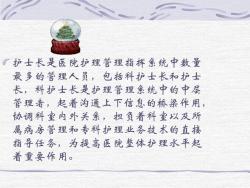 护士长是医院护理管理指挥系统中数量
最多的管理人员，包括科护士长和护士
长，科护士长是护理管理系统中的中层
管理者，起着沟通上下信息的桥梁作用，
协调科室内外关系，担负着科室以及所
属病房管理和专科护理业务技术的直接
指导任务，为提高医院整体护理水平起
着重要作用。